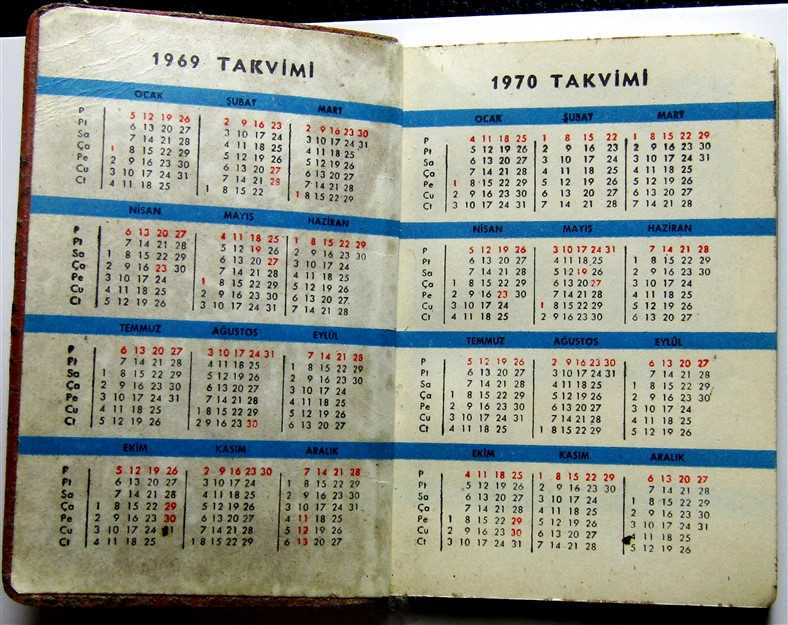 1969 TAKVİMİ
OCAK ŞUBAT MART
P 5 12 19 26 2 9 16 23 2 9 16 23 30
Pt 6 13 20 27 3 10 17 24 3 10 17 24 31
Sa 7 14 21 28 4 11 18 25 4 11 18 25
Ça 1 8 15 22 29 5 12 19 26 5 12 19 26
Pe 2 9 16 23 30 6 13 20 27 6 13 20 27
Cu 3 10 17 24 31 7 14 21 28 7 14 21 28
Ct 4 11 18 25 1 8 15 22 1 8 15 22 29
NİSAN MAYIS HAZİRAN
P 6 13 20 27 4 11 18 25 1 8 15 22 29
Pt 7 14 21 28 5 12 19 26 2 9 16 23 30
Sa 1 8 15 22 29 6 13 20 27 3 10 17 24
Ça 2 9 16 23 30 7 14 21 28 4 11 18 25
Pe 3 10 17 24 1 8 15 22 29 5 12 19 26
Cu 4 11 18 25 2 9 16 23 30 6 13 20 27
Ct 5 12 19 26 3 10 17 24 31 7 14 21 28
TEMMUZ AĞUSTOS EYLÜL
P 6 13 20 27 3 10 17 24 31 7 14 21 28
Pt 7 14 21 28 4 11 18 25 1 8 15 22 29
Sa 1 8 15 22 29 5 12 19 26 2 9 16 23 30
Ça 2 9 16 23 30 6 13 20 27 3 10 17 24
Pe 3 10 17 24 31 7 14 21 28 4 11 18 25
Cu 4 11 18 25 1 8 15 22 29 5 12 19 26
Ct 5 12 19 26 2 9 16 23 30 6 13 20 27
EKİM KASIM ARALIK
P 5 12 19 26 2 9 16 23 30 7 14 21 28
Pt 6 13 20 27 3 10 17 24 1 8 15 22 29
Sa 7 14 21 28 4 11 18 25 2 9 16 23 30
Ça 1 8 15 22 29 5 12 19 26 3 10 17 24 31
Pe 2 9 16 23 30 6 13 20 27 4 11 18 25
Cu 3 10 17 24 31 7 14 21 28 5 12 19 26
Ct 4 11 18 25 1 8 15 22 29 6 13 20 27
1970 TAKVİMİ
OCAK ŞUBAT MART
P 4 11 18 25 1 8 15 22 1 8 15 22 29
Pt 5 12 19 26 2 9 16 23 2 9 16 23 30
Sa 6 13 20 27 3 10 17 24 3 10 17 24 31
Ça 7 14 21 28 4 11 18 25 4 11 18 25
Pe 1 8 15 22 29 5 12 19 26 5 12 19 26
Cu 2 9 16 23 30 6 13 20 27 6 13 20 27
Ct 3 10 17 24 31 7 14 21 28 7 14 21 28
NİSAN MAYIS HAZİRAN
P 5 12 19 26 3 10 17 24 31 7 14 21 28
Pt 6 13 20 27 4 11 18 25 1 8 15 22 29
Sa 7 14 21 28 5 12 19 26 2 9 16 23 30
Ça 1 8 15 22 29 6 13 20 27 3 10 17 24
Pe 2 9 16 23 30 7 14 21 28 4 11 18 25
Cu 3 10 17 24 1 8 15 22 29 5 12 19 26
Ct 4 11 18 25 2 9 16 23 30 6 13 20 27
TEMMUZ AĞUSTOS EYLÜL
P 5 12 19 26 2 9 16 23 30 6 13 20 27
Pt 6 13 20 27 3 10 17 24 31 7 14 21 28
Sa 7 14 21 28 4 11 18 25 1 8 15 22 29
Ça 1 8 15 22 29 5 12 19 26 2 9 16 23 30
Pe 2 9 16 23 30 6 13 20 27 3 10 17 24
Cu 3 10 17 24 31 7 14 21 28 4 11 18 25
Ct 4 11 18 25 1 8 15 22 29 5 12 19 26
EKİM KASIM ARALIK
P 4 11 18 25 1 8 15 22 29 6 13 20 27
Pt 5 12 19 26 2 9 16 23 30 7 14 21 28
Sa 6 13 20 27 3 10 17 24 1 8 15 22 29
Ça 7 14 21 28 4 11 18 25 2 9 16 23 30
Pe 1 8 15 22 29 5 12 19 26 3 10 17 24 31
Cu 2 9 16 23 30 6 13 20 27 4 11 18 25
Ct 3 10 17 24 31 7 14 21 28 5 12 19 26